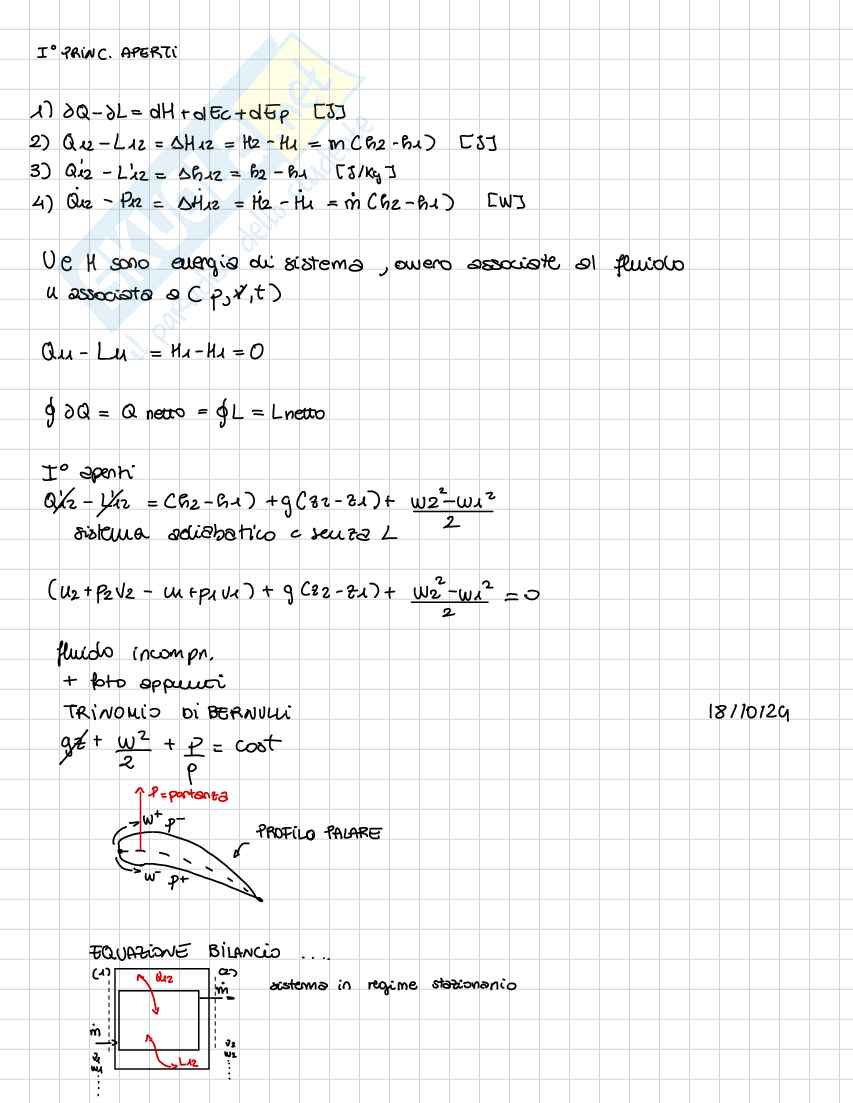 I° PRINC. APERTI
1) ∂Q-∂L = dH+dEc+dEp [J]
2) Q12 - L12 = ΔH12 = H2 - H1 = m(h2-h1) [J]
3) Q'12 - L'12 = Δh12 = h2 - h1 [J/Kg]
4) Q̇12 - P12 = ΔḢ12 = Ḣ2 - Ḣ1 = ṁ(h2-h1) [W]
U e H sono energia di sistema, ovvero associate al fluido
u associata a (p,v,t)
Q11 - L11 = H1-H1 = 0
∮∂Q = Q netto = ∮L = Lnetto
I° aperti
Q'12 - L'12 = (h2-h1) + g(z2-z1) + (w2²-w1²)/2
sistema adiabatico e senza L
(u2+p2v2 - u1+p1v1) + g(z2-z1) + (w2²-w1²)/2 = 0
fluido incompr.
+ foto appunti
TRINOMIO DI BERNULLI
18/10/24
gz + w²/2 + p/ρ = cost
P=portanza
w+ p-
PROFILO PALARE
w- p+
EQUAZIONE BILANCIO ....
(1) Q12 (2)
ṁ
sistema in regime stazionario
ṁ
L12
w1
w2
SKUOLA.net
il paradiso dello studente